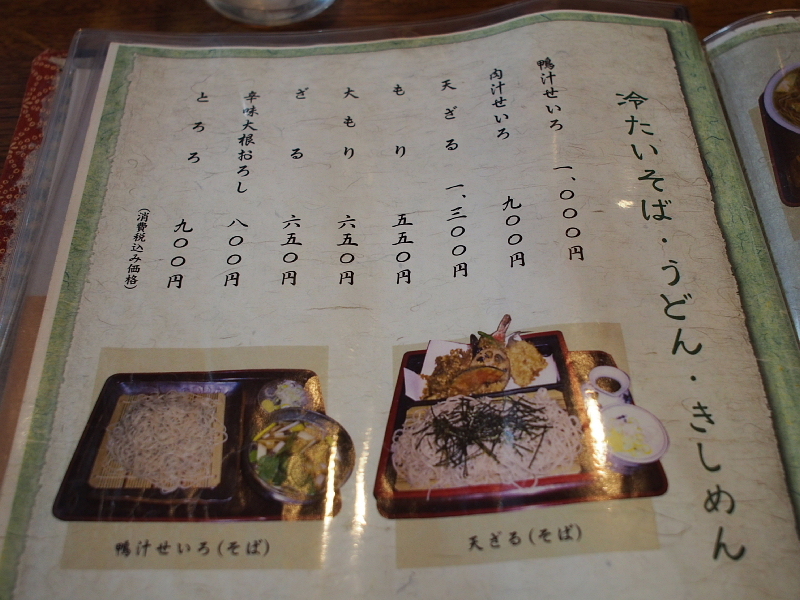 冷たいそば・うどん・きしめん
鴨汁せいろ 一、〇〇〇円
肉汁せいろ 九〇〇円
天ざる 一、三〇〇円
もり 五五〇円
大もり 六五〇円
ざる 六五〇円
辛味大根おろし 八〇〇円
とろろ 九〇〇円
（消費税込み価格）
鴨汁せいろ(そば)
天ざる(そば)